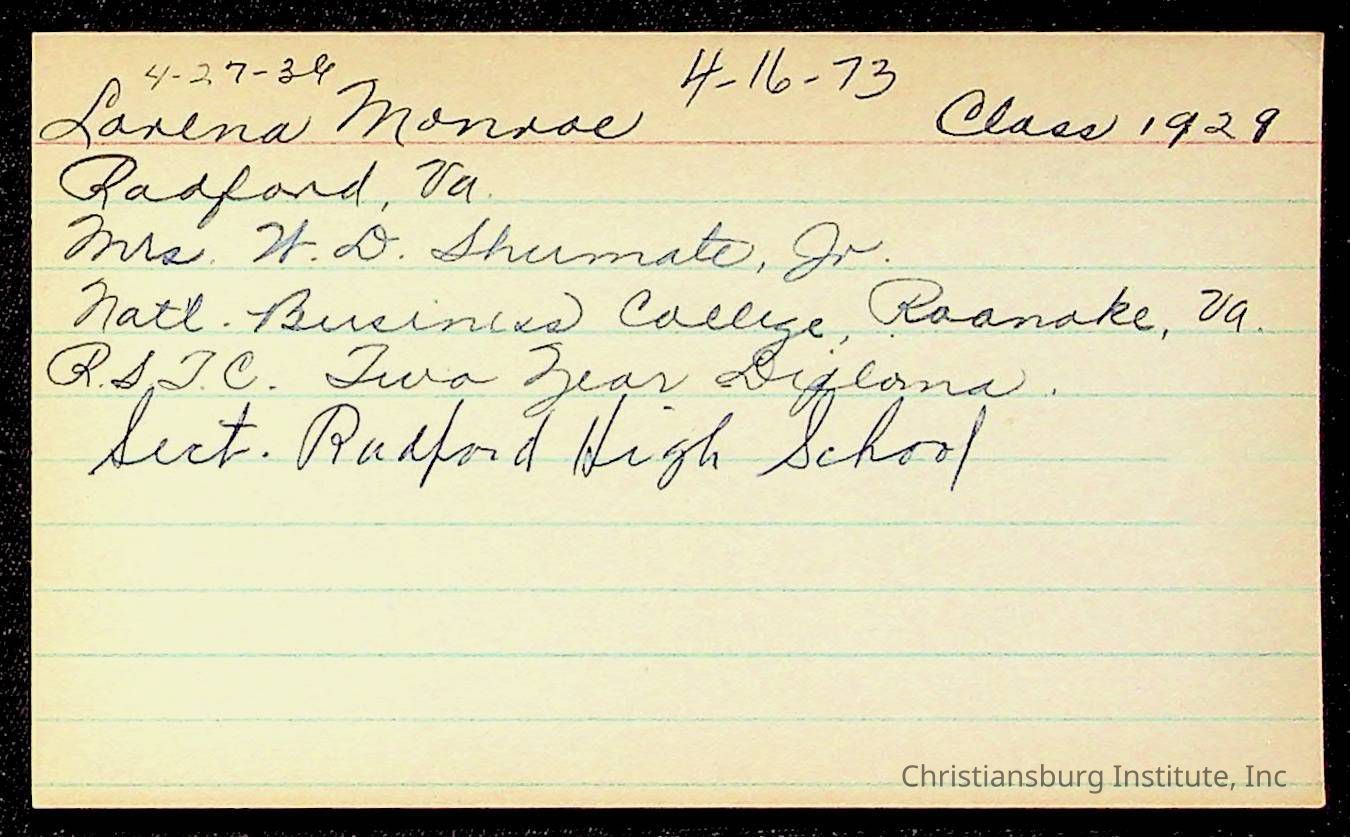 4-27-36 4-16-73
Lorena Monroe Class 1929
Radford, Va.
Mrs. W. D. Shumate, Jr.
Natl. Business College, Roanoke, Va.
R.S.T.C. Two Year Diploma.
Sect. Radford High School
Christiansburg Institute, Inc